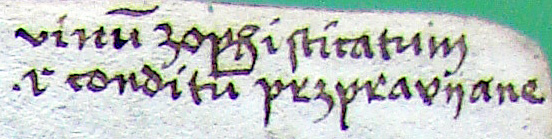 vinū zophisticatum
.r conditū przpravyane